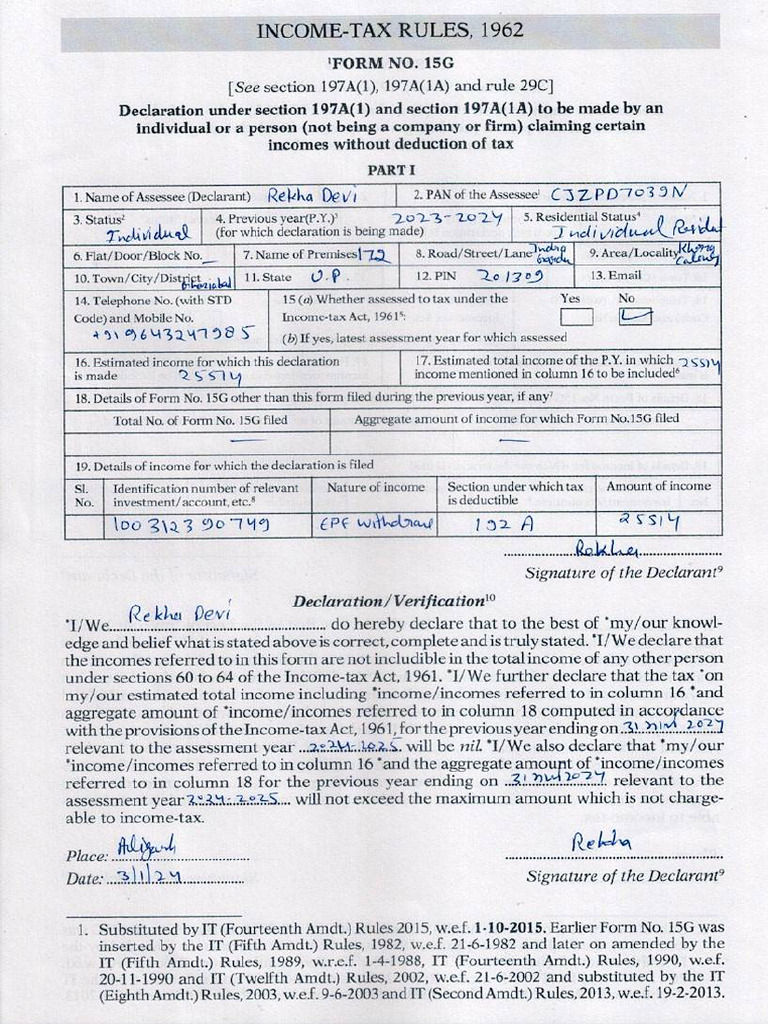 INCOME-TAX RULES, 1962
¹FORM NO. 15G
[See section 197A(1), 197A(1A) and rule 29C]
Declaration under section 197A(1) and section 197A(1A) to be made by an
individual or a person (not being a company or firm) claiming certain
incomes without deduction of tax
PART I
1. Name of Assessee (Declarant) Rekha Devi 2. PAN of the Assessee¹ CJZPD7039N
3. Status² Individual 4. Previous year(P.Y.)³ (for which declaration is being made) 2023-2024 5. Residential Status⁴ Individual
6. Flat/Door/Block No. 7. Name of Premises 172 8. Road/Street/Lane 9. Area/Locality Colony
10. Town/City/District Ghaziabad 11. State U.P. 12. PIN 201309 13. Email
14. Telephone No. (with STD Code) and Mobile No. +91 9643247985 15 (a) Whether assessed to tax under the Income-tax Act, 1961⁵: Yes No
(b) If yes, latest assessment year for which assessed
16. Estimated income for which this declaration is made 25514 17. Estimated total income of the P.Y. in which income mentioned in column 16 to be included⁶ 25514
18. Details of Form No. 15G other than this form filed during the previous year, if any⁷
Total No. of Form No. 15G filed Aggregate amount of income for which Form No.15G filed
— —
19. Details of income for which the declaration is filed
Sl. No. Identification number of relevant investment/account, etc.⁸ Nature of income Section under which tax is deductible Amount of income
100312390749 EPF Withdraw 192 A 25514
Rekha
Signature of the Declarant⁹
Declaration/Verification¹⁰
*I/We Rekha Devi do hereby declare that to the best of *my/our knowl-
edge and belief what is stated above is correct, complete and is truly stated. *I/We declare that
the incomes referred to in this form are not includible in the total income of any other person
under sections 60 to 64 of the Income-tax Act, 1961. *I/We further declare that the tax *on
my/our estimated total income including *income/incomes referred to in column 16 *and
aggregate amount of *income/incomes referred to in column 18 computed in accordance
with the provisions of the Income-tax Act, 1961, for the previous year ending on 31 2024
relevant to the assessment year 2024-2025 will be nil. *I/We also declare that *my/our
*income/incomes referred to in column 16 *and the aggregate amount of *income/incomes
referred to in column 18 for the previous year ending on 31 2024 relevant to the
assessment year 2024-2025 will not exceed the maximum amount which is not charge-
able to income-tax.
Place: Aligarh Rekha
Date: 3/1/24 Signature of the Declarant⁹
1. Substituted by IT (Fourteenth Amdt.) Rules 2015, w.e.f. 1-10-2015. Earlier Form No. 15G was
inserted by the IT (Fifth Amdt.) Rules, 1982, w.e.f. 21-6-1982 and later on amended by the
IT (Fifth Amdt.) Rules, 1989, w.r.e.f. 1-4-1988, IT (Fourteenth Amdt.) Rules, 1990, w.e.f.
20-11-1990 and IT (Twelfth Amdt.) Rules, 2002, w.e.f. 21-6-2002 and substituted by the IT
(Eighth Amdt.) Rules, 2003, w.e.f. 9-6-2003 and IT (Second Amdt.) Rules, 2013, w.e.f. 19-2-2013.